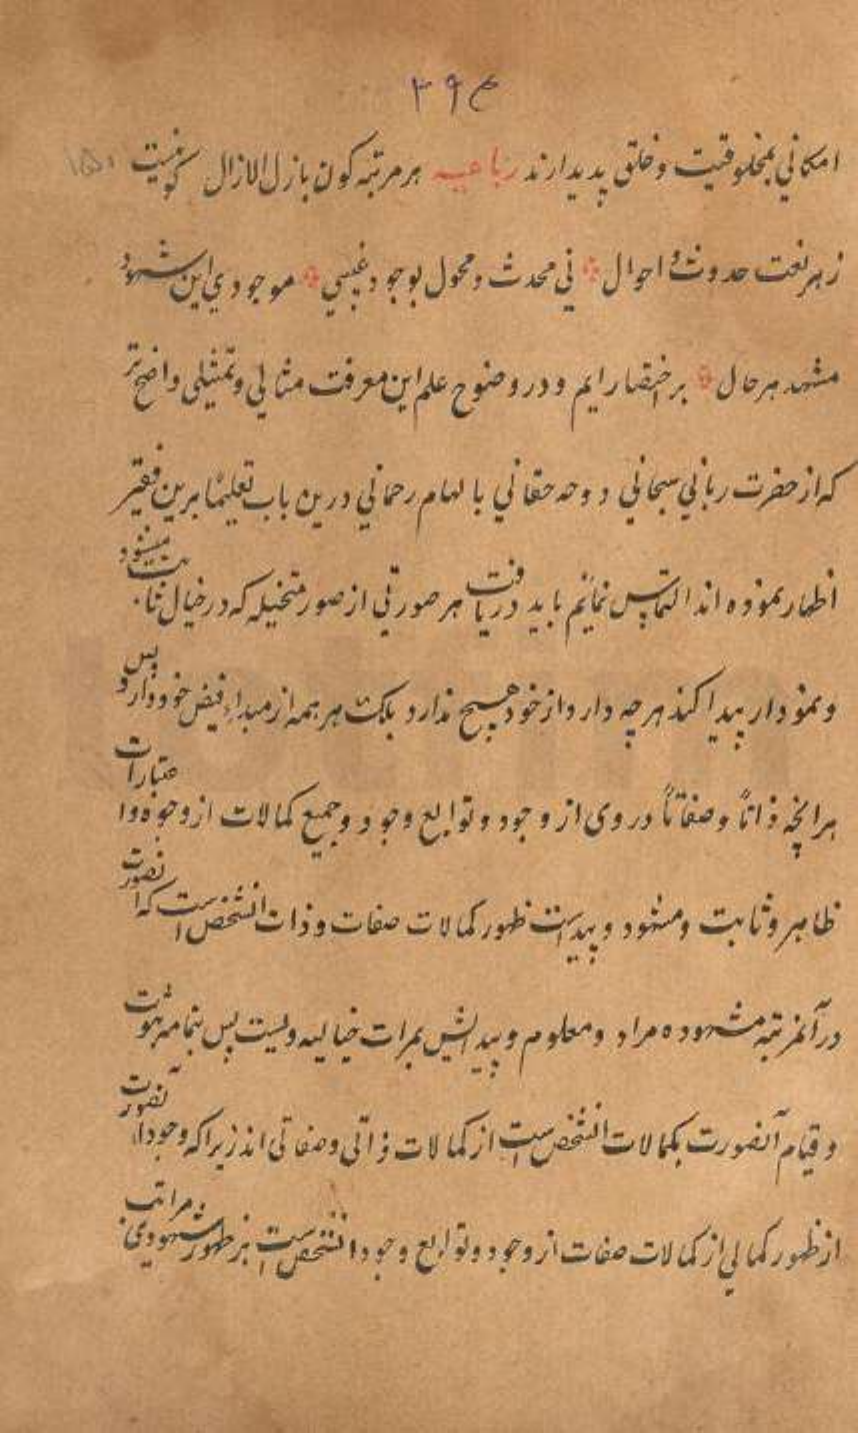 ۳۹۵
۱۵۰
امکانی بمخلوقیت و خلق پدیدارند رباعیه هر مرتبه کون بازل الازال کو نیست
زهر نعت حدوث و احوال نی محدث و محول بوجود غیبی موجودی این شهود
مشهد هر حال بر اختصار ایم و در وضوح علم این معرفت مثالی و تمثیلی واضح تر
که از حضرت ربانی سبحانی و وحد حقانی با لهام رحمانی درین باب تعلیما برین فقیر
اظهار نموده اند التماس نمائیم باید دریافت هر صورتی از صور متخیله که در خیال ثابت میشود
و نمودار پیدا کند هر چه دارد از خود هیچ ندارد بلکه هر همه از مبداء فیض خود دارد پس
هرانچه ذاتاً و صفاتاً در وی از وجود و توابع وجود و جمیع کمالات از وجوه و اعتبارات
ظاهر و ثابت و مشهود و پیداست ظهور کمالات صفات و ذات انشخص است که انصورت
در آنمرتبه مشهوده مراد و معلوم و پیدایش بمرات خیالیه ویست پس بتمامه ثبوت
و قیام آنصورت بکمالات انشخص است از کمالات ذاتی و صفاتی اند زیرا که وجود آنصورت
از ظهور کمالی از کمالات صفات از وجود و توابع وجود انشخص است بر ظهور شهودی بمراتب